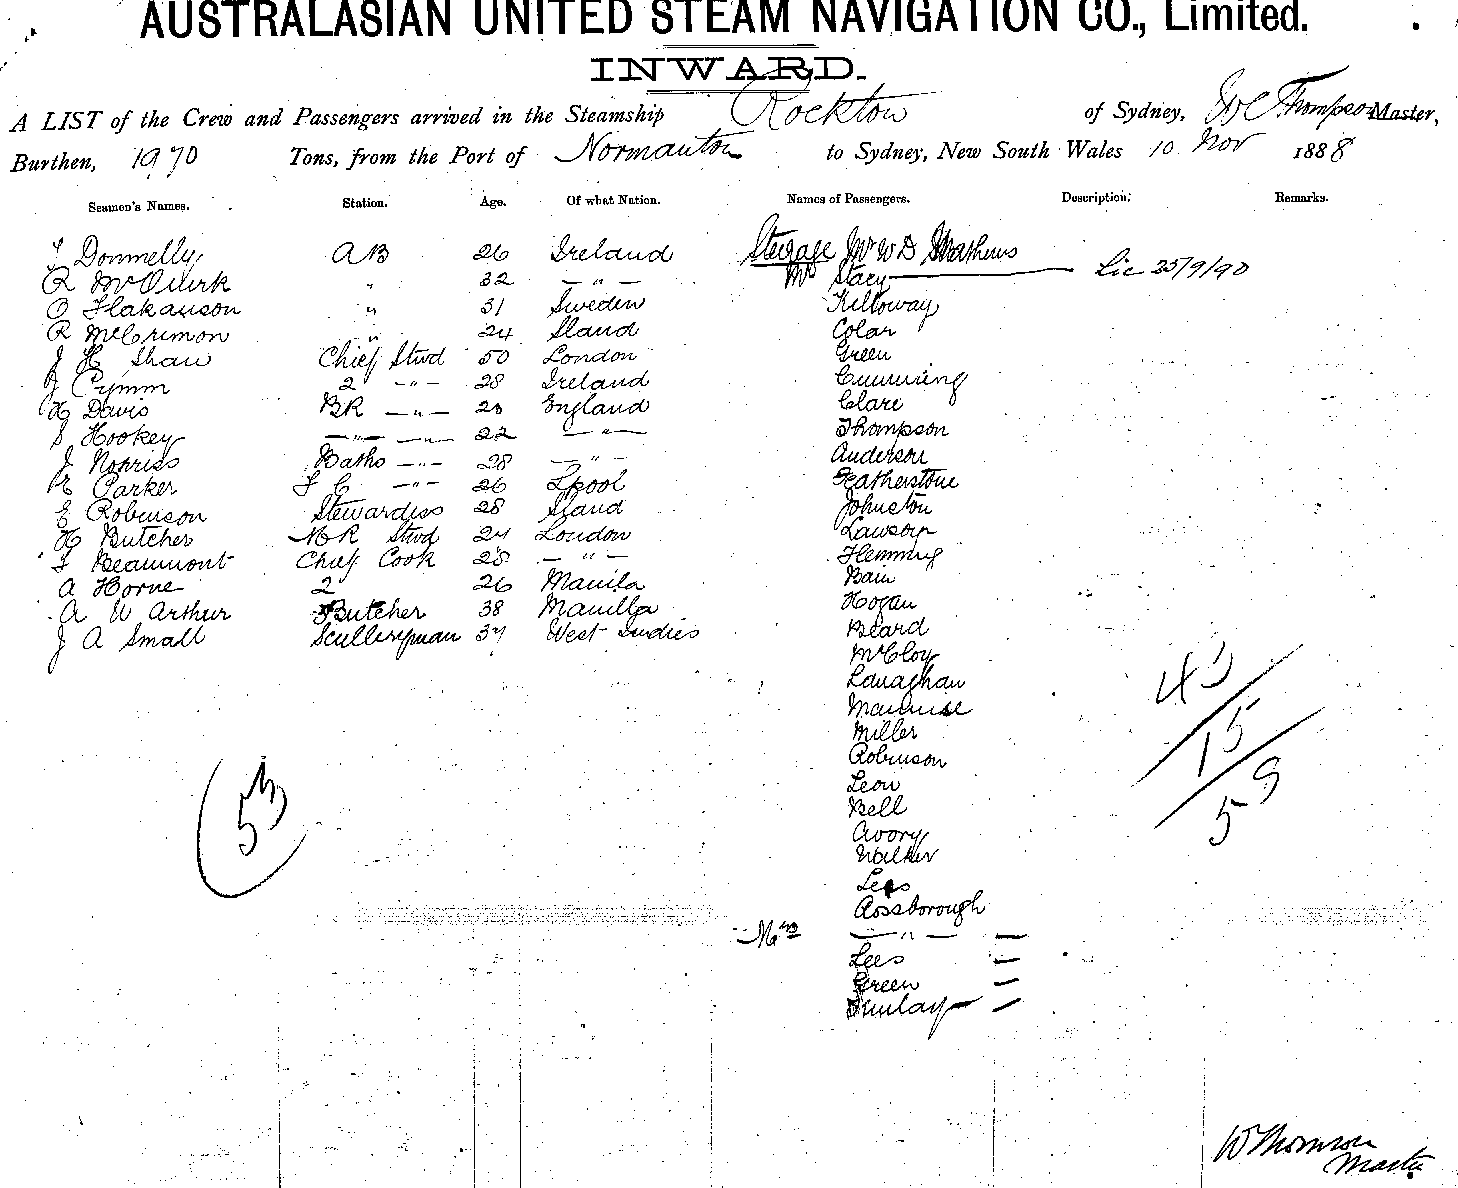 AUSTRALASIAN UNITED STEAM NAVIGATION CO., Limited.
INWARD.
A LIST of the Crew and Passengers arrived in the Steamship Rockton of Sydney, W C Thompson Master,
Burthen, 1970 Tons, from the Port of Normanton to Sydney, New South Wales 10 Nov 1888
Seamen's Names. Station. Age. Of what Nation. Names of Passengers. Description. Remarks.
T Donnelly AB 26 Ireland Steerage Mr W D Mathews
R McQuirk " 32 — " — Mr Stacy Lic 25/9/90
O Hakanson " 31 Sweden Killoway
R McCrimon " 24 Sland Colar
J H Shaw Chief Stwd 50 London Green
J Cymm 2 — " — 28 Ireland Cumming
H Davis BR — " — 23 England Clare
S Hookey — " — — " — 22 — " — Thompson
J Norriss Baths — " — 28 — " — Anderson
R Parker F C — " — 26 Lpool Featherstone
E Robinson Stewardess 28 Sland Johnston
H Butcher NR Stwd 24 London Lawson
T Beaumont Chief Cook 28 — " — Flemming
A Horne 2 26 Manila Bain
A W Arthur Butcher 38 Manilla Hogan
J A Small Sculleryman 37 West Indies Beard
McCloy
Lanaghan
Miller
Robinson
Leon
Bell
Avory
Walker
Lees
Rossborough
Mrs — " — —
Lees —
Green —
Finlay —
43
15
58
53
W Thomson
Master